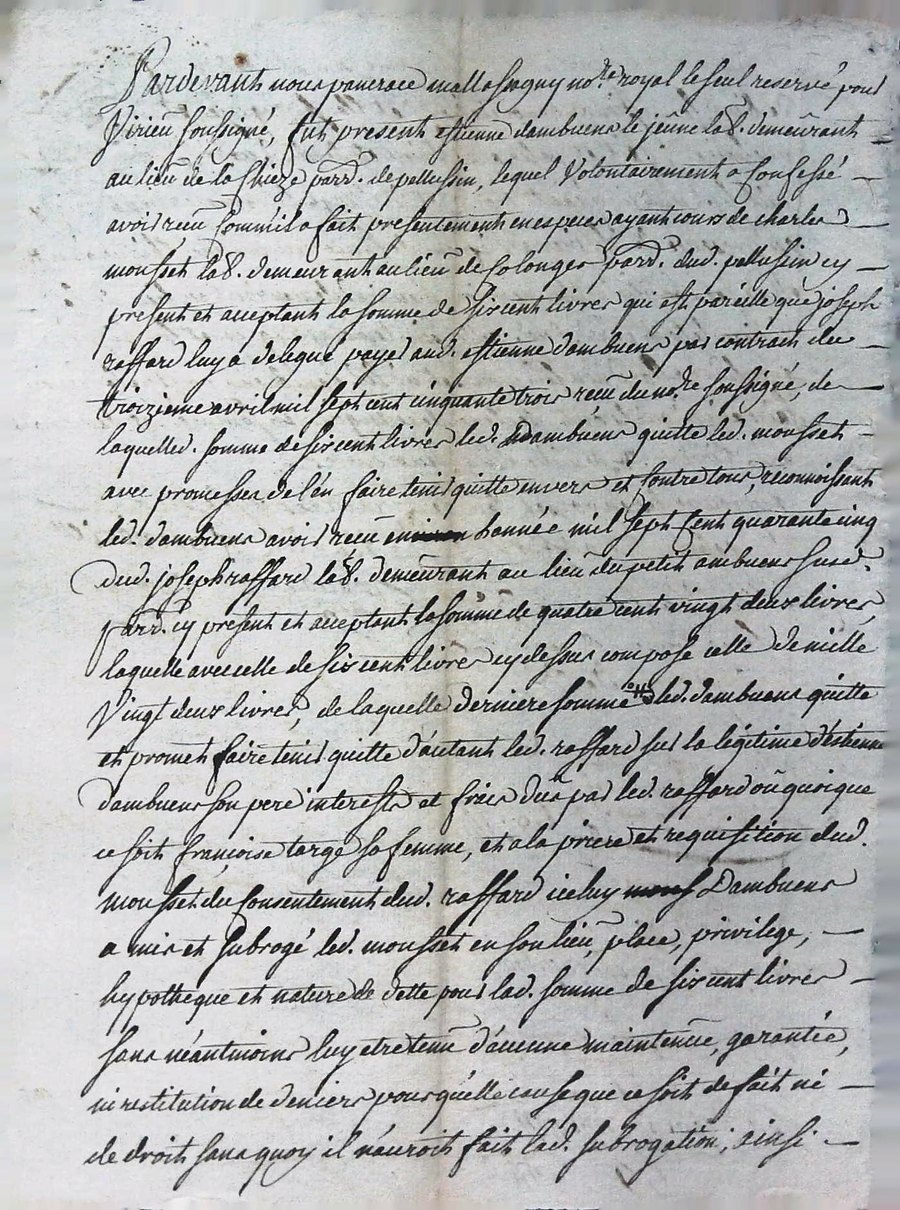 Pardevant nous pancrace mallassagny no.re royal le seul reservé pour
Virieu soussigné, fut present estienne dambuens le jeune lab. demeurant
au lieu de la Chieze parr. de pellussin, lequel Volontairement a Confessé
avoir reçu Comm'il a fait presentement en especes ayant cours de charles
mousset lab. demeurant au lieu de Colonges parr. dud. pellussin cy
present et acceptant la somme de six cent livres qui est pareille que joseph
raffard luy a delegué payer aud. estienne dambuens par contrach du
troizieme avril mil sept cent cinquante trois reçu du no.re soussigné, de
laquelled. somme de six cent livres led. dambuens quitte led. mousset
avec promesses de l'en faire tenir quitte envers et Contre tous, reconnoissant
led. dambuens avoir reçu en l'année mil sept Cent quarante cinq
dud. joseph raffard lab. demeurant au lieu du petit ambuens susd.
parr. cy present et acceptant la somme de quatre cent vingt deux livres,
laquelle avec celle de six cent livres cy dessus compose celle de mille
Vingt deux livres, de laquelle derniere somme led. dambuens quitte
et promet faire tenir quitte d'autant led. raffard sur la légitime d'estienne
dambuens son pere interests et frais dûs par led. raffard où quoique
ce soit françoise targe sa femme, et a la priere et requisition dud.
mousset du Consentement dud. raffard iceluy Dambuens
a mis et subrogé led. mousset en son lieu, place, privilege,
hypotheque et nature de dette pour lad. somme de six cent livres
sans néantmoins luy etre tenu d'aucune maintenüe, garantie,
ni restitution de deniers pour qu'elle cause que ce soit de fait ni
de droit sans quoy il n'auroit fait lad. subrogation; ainsi